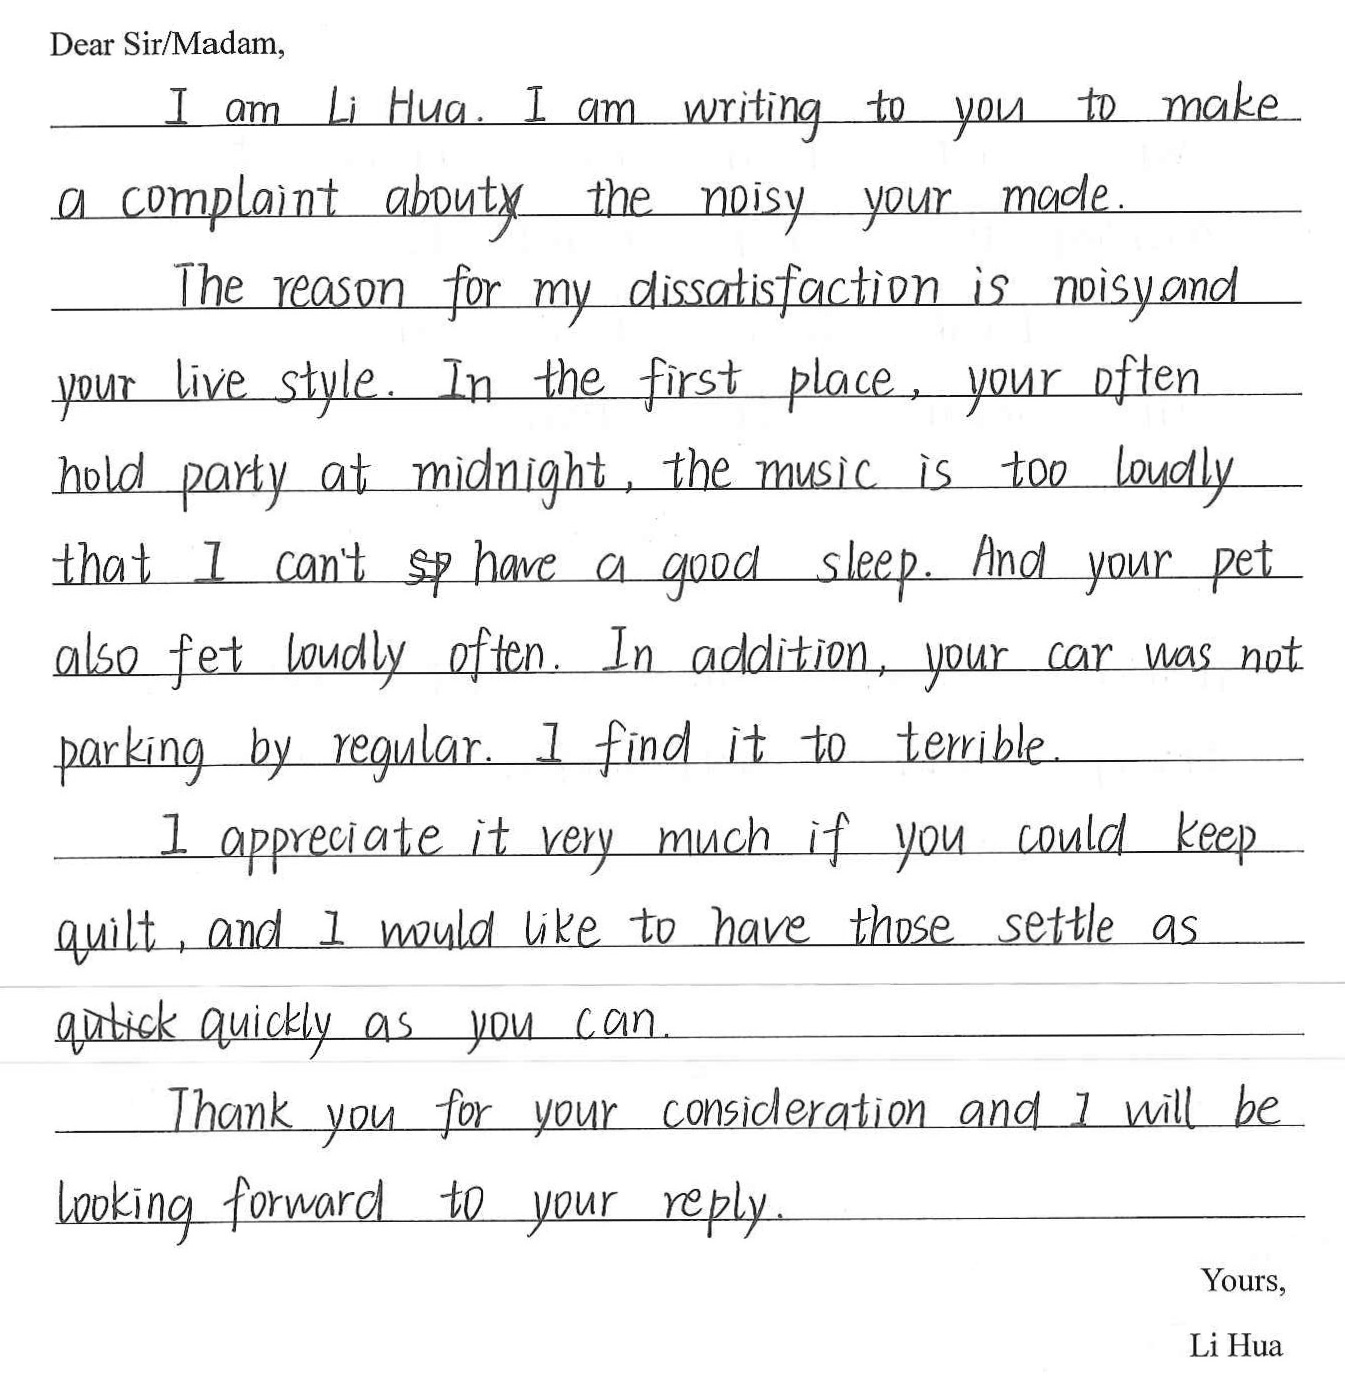 Dear Sir/Madam,
I am Li Hua. I am writing to you to make
a complaint about the noisy your made.
The reason for my dissatisfaction is noisy and
your live style. In the first place, your often
hold party at midnight, the music is too loudly
that I can't have a good sleep. And your pet
also fet loudly often. In addition, your car was not
parking by regular. I find it to terrible.
I appreciate it very much if you could keep
quilt, and I would like to have those settle as
quickly as you can.
Thank you for your consideration and I will be
looking forward to your reply.
Yours,
Li Hua